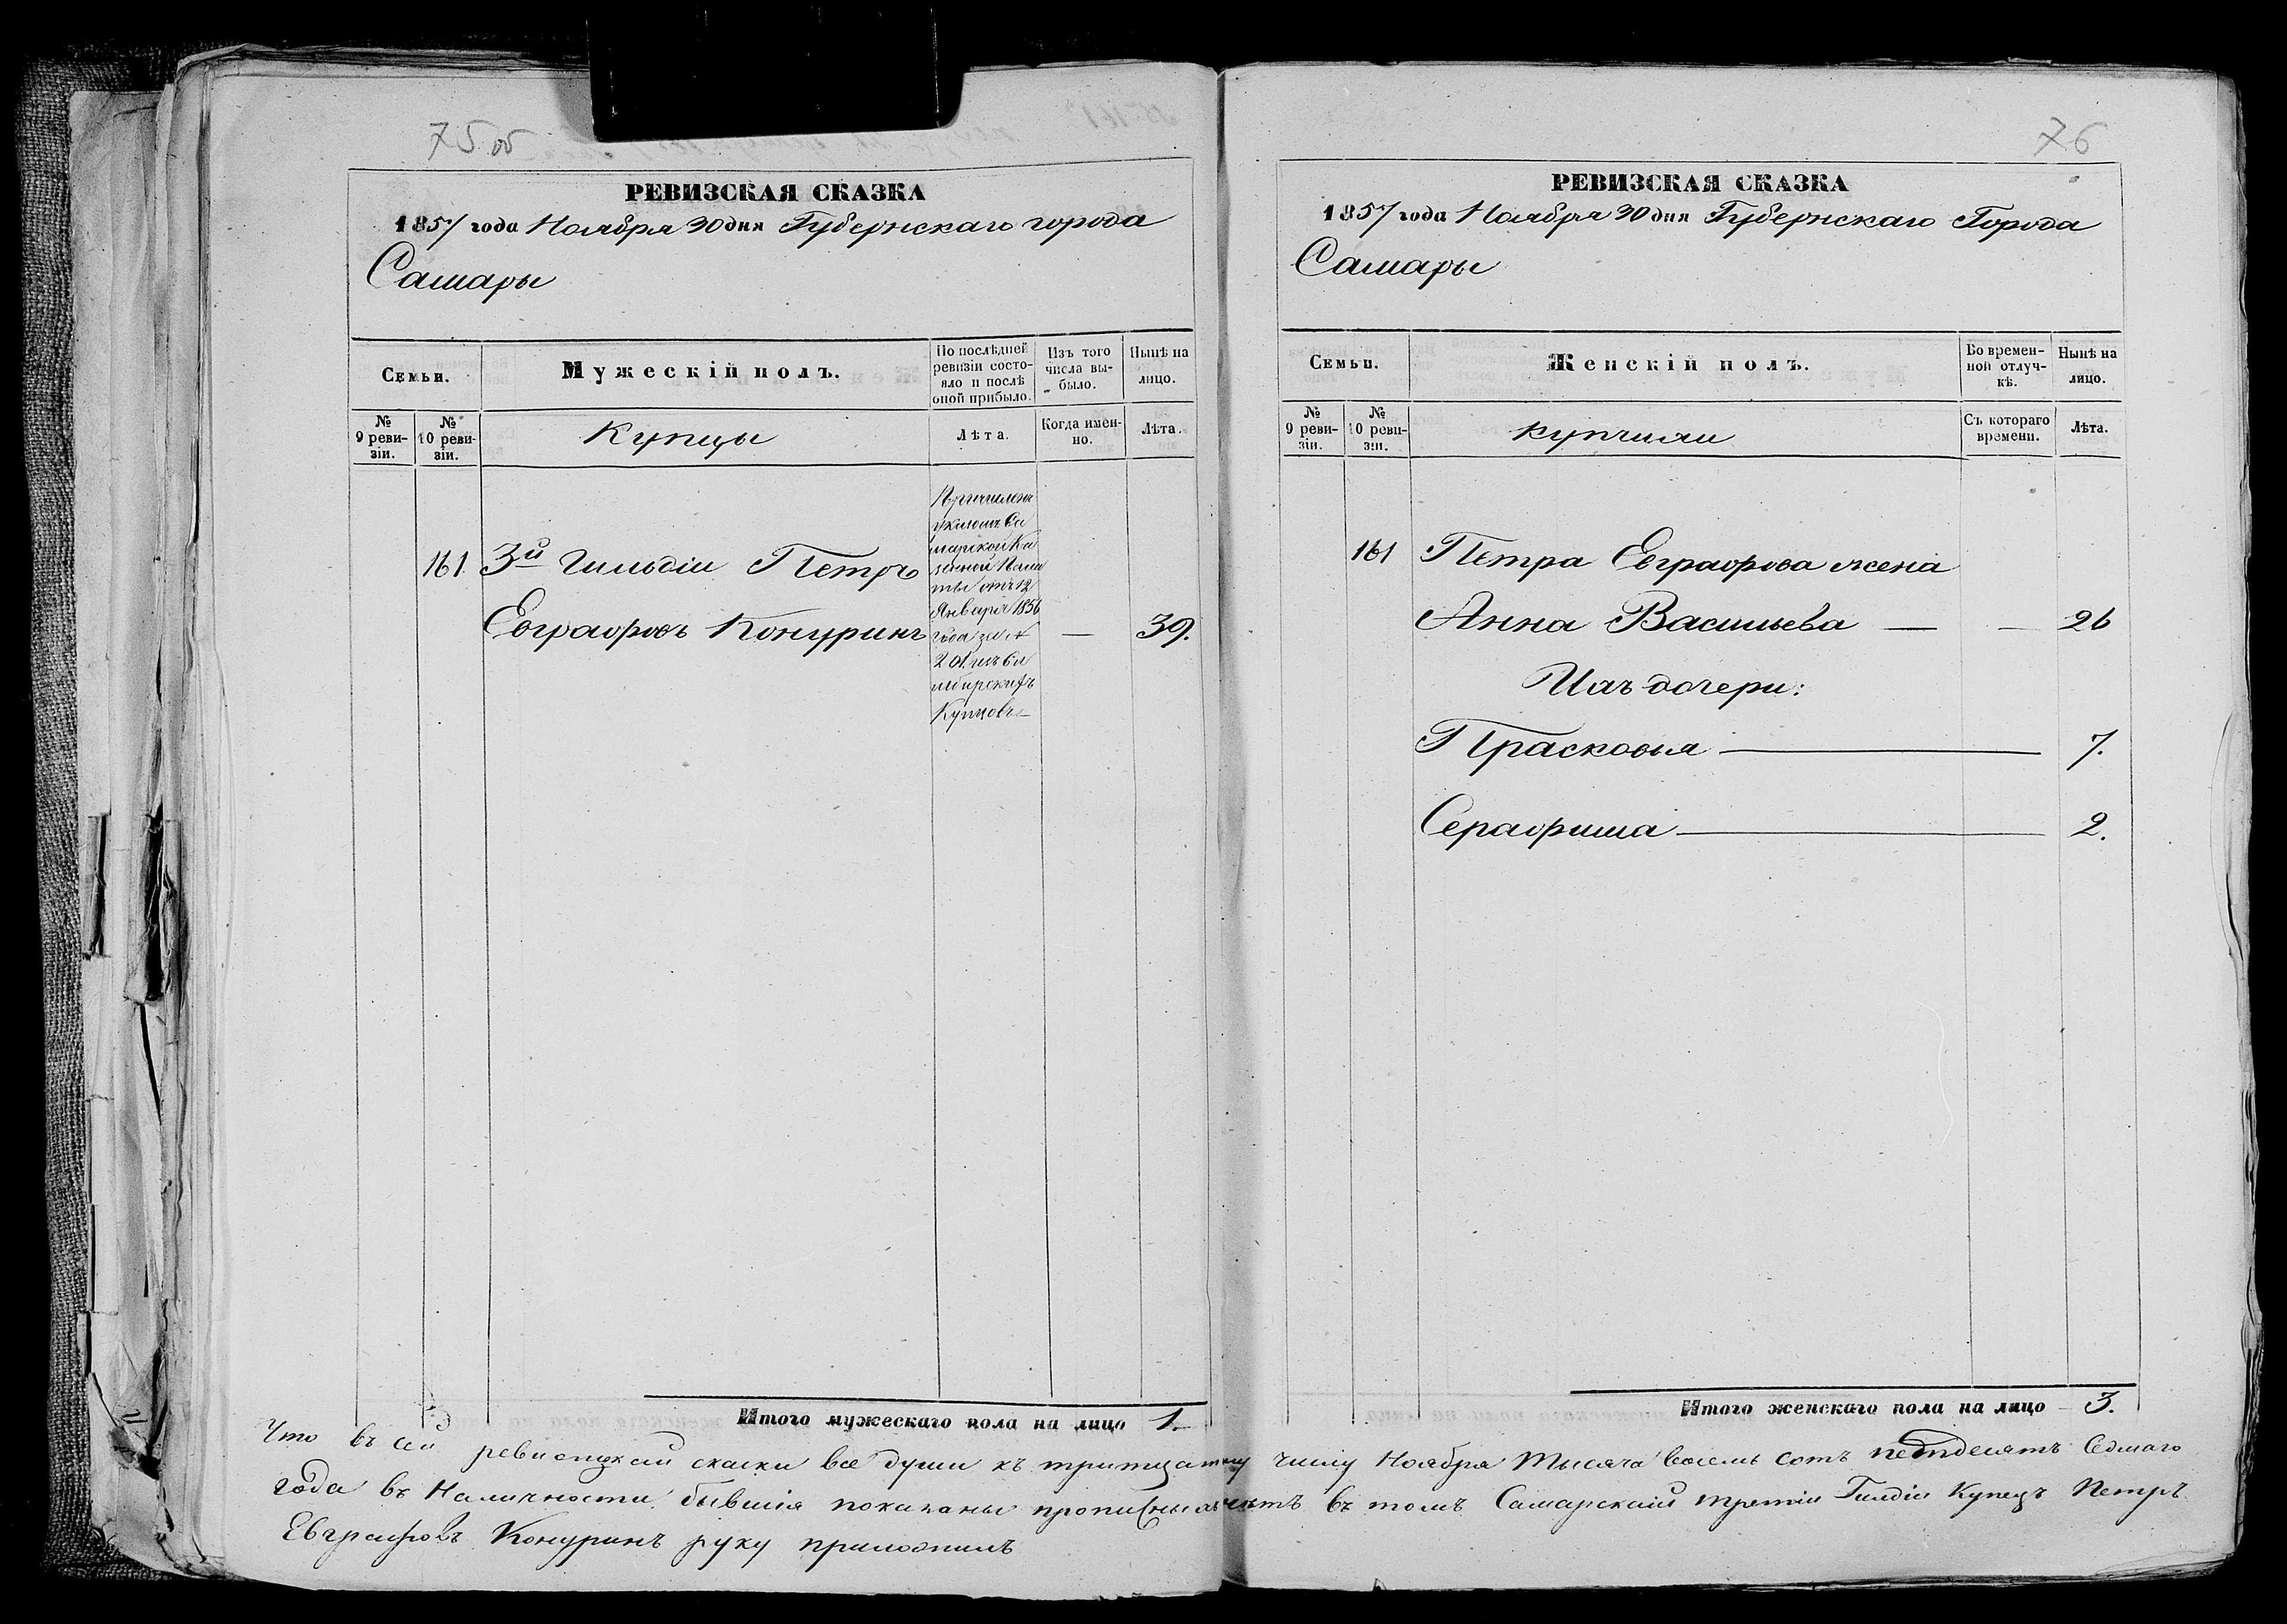 75 об
РЕВИЗСКАЯ СКАЗКА
1857 года Ноября 30 дня Губернскаго города
Самары
Семьи.
Мужескій полъ.
По послѣдней ревизіи состояло и послѣ оной прибыло.
Изъ того числа выбыло.
Нынѣ на лицо.
№ 9 ревизіи.
№ 10 ревизіи.
Купцы
Лѣта.
Когда именно.
Лѣта.
161
3й Гильдіи Петръ
Евграфовъ Конуринъ
Причисленъ
указомъ Са
марской Ка
зенной Пала
ты отъ 12
Января 1856
года за №
201 изъ Си
мбирскихъ
Купцовъ
—
39.
Итого мужескаго пола на лицо 1.
76
РЕВИЗСКАЯ СКАЗКА
1857 года Ноября 30 дня Губернскаго Города
Самары
Семьи.
Женскій полъ.
Во временной отлучкѣ.
Нынѣ на лицо.
№ 9 ревизіи.
№ 10 ревизіи.
купчихи
Съ котораго времени.
Лѣта.
161 Петра Евграфова жена
Анна Васильева — — 26
Ихъ дочери:
Прасковья — 7.
Серафима — 2.
Итого женскаго пола на лицо 3.
Что въ сей ревизской скаски все души къ тритцатому числу Ноября тысяча восемь сотъ педьдесятъ Седмаго
года въ Наличности бывшія показаны прописныхъ нетъ въ томъ Самарскаій третіи Гилдіи Купецъ Петръ
Евграфовъ Конуринъ руку приложилъ